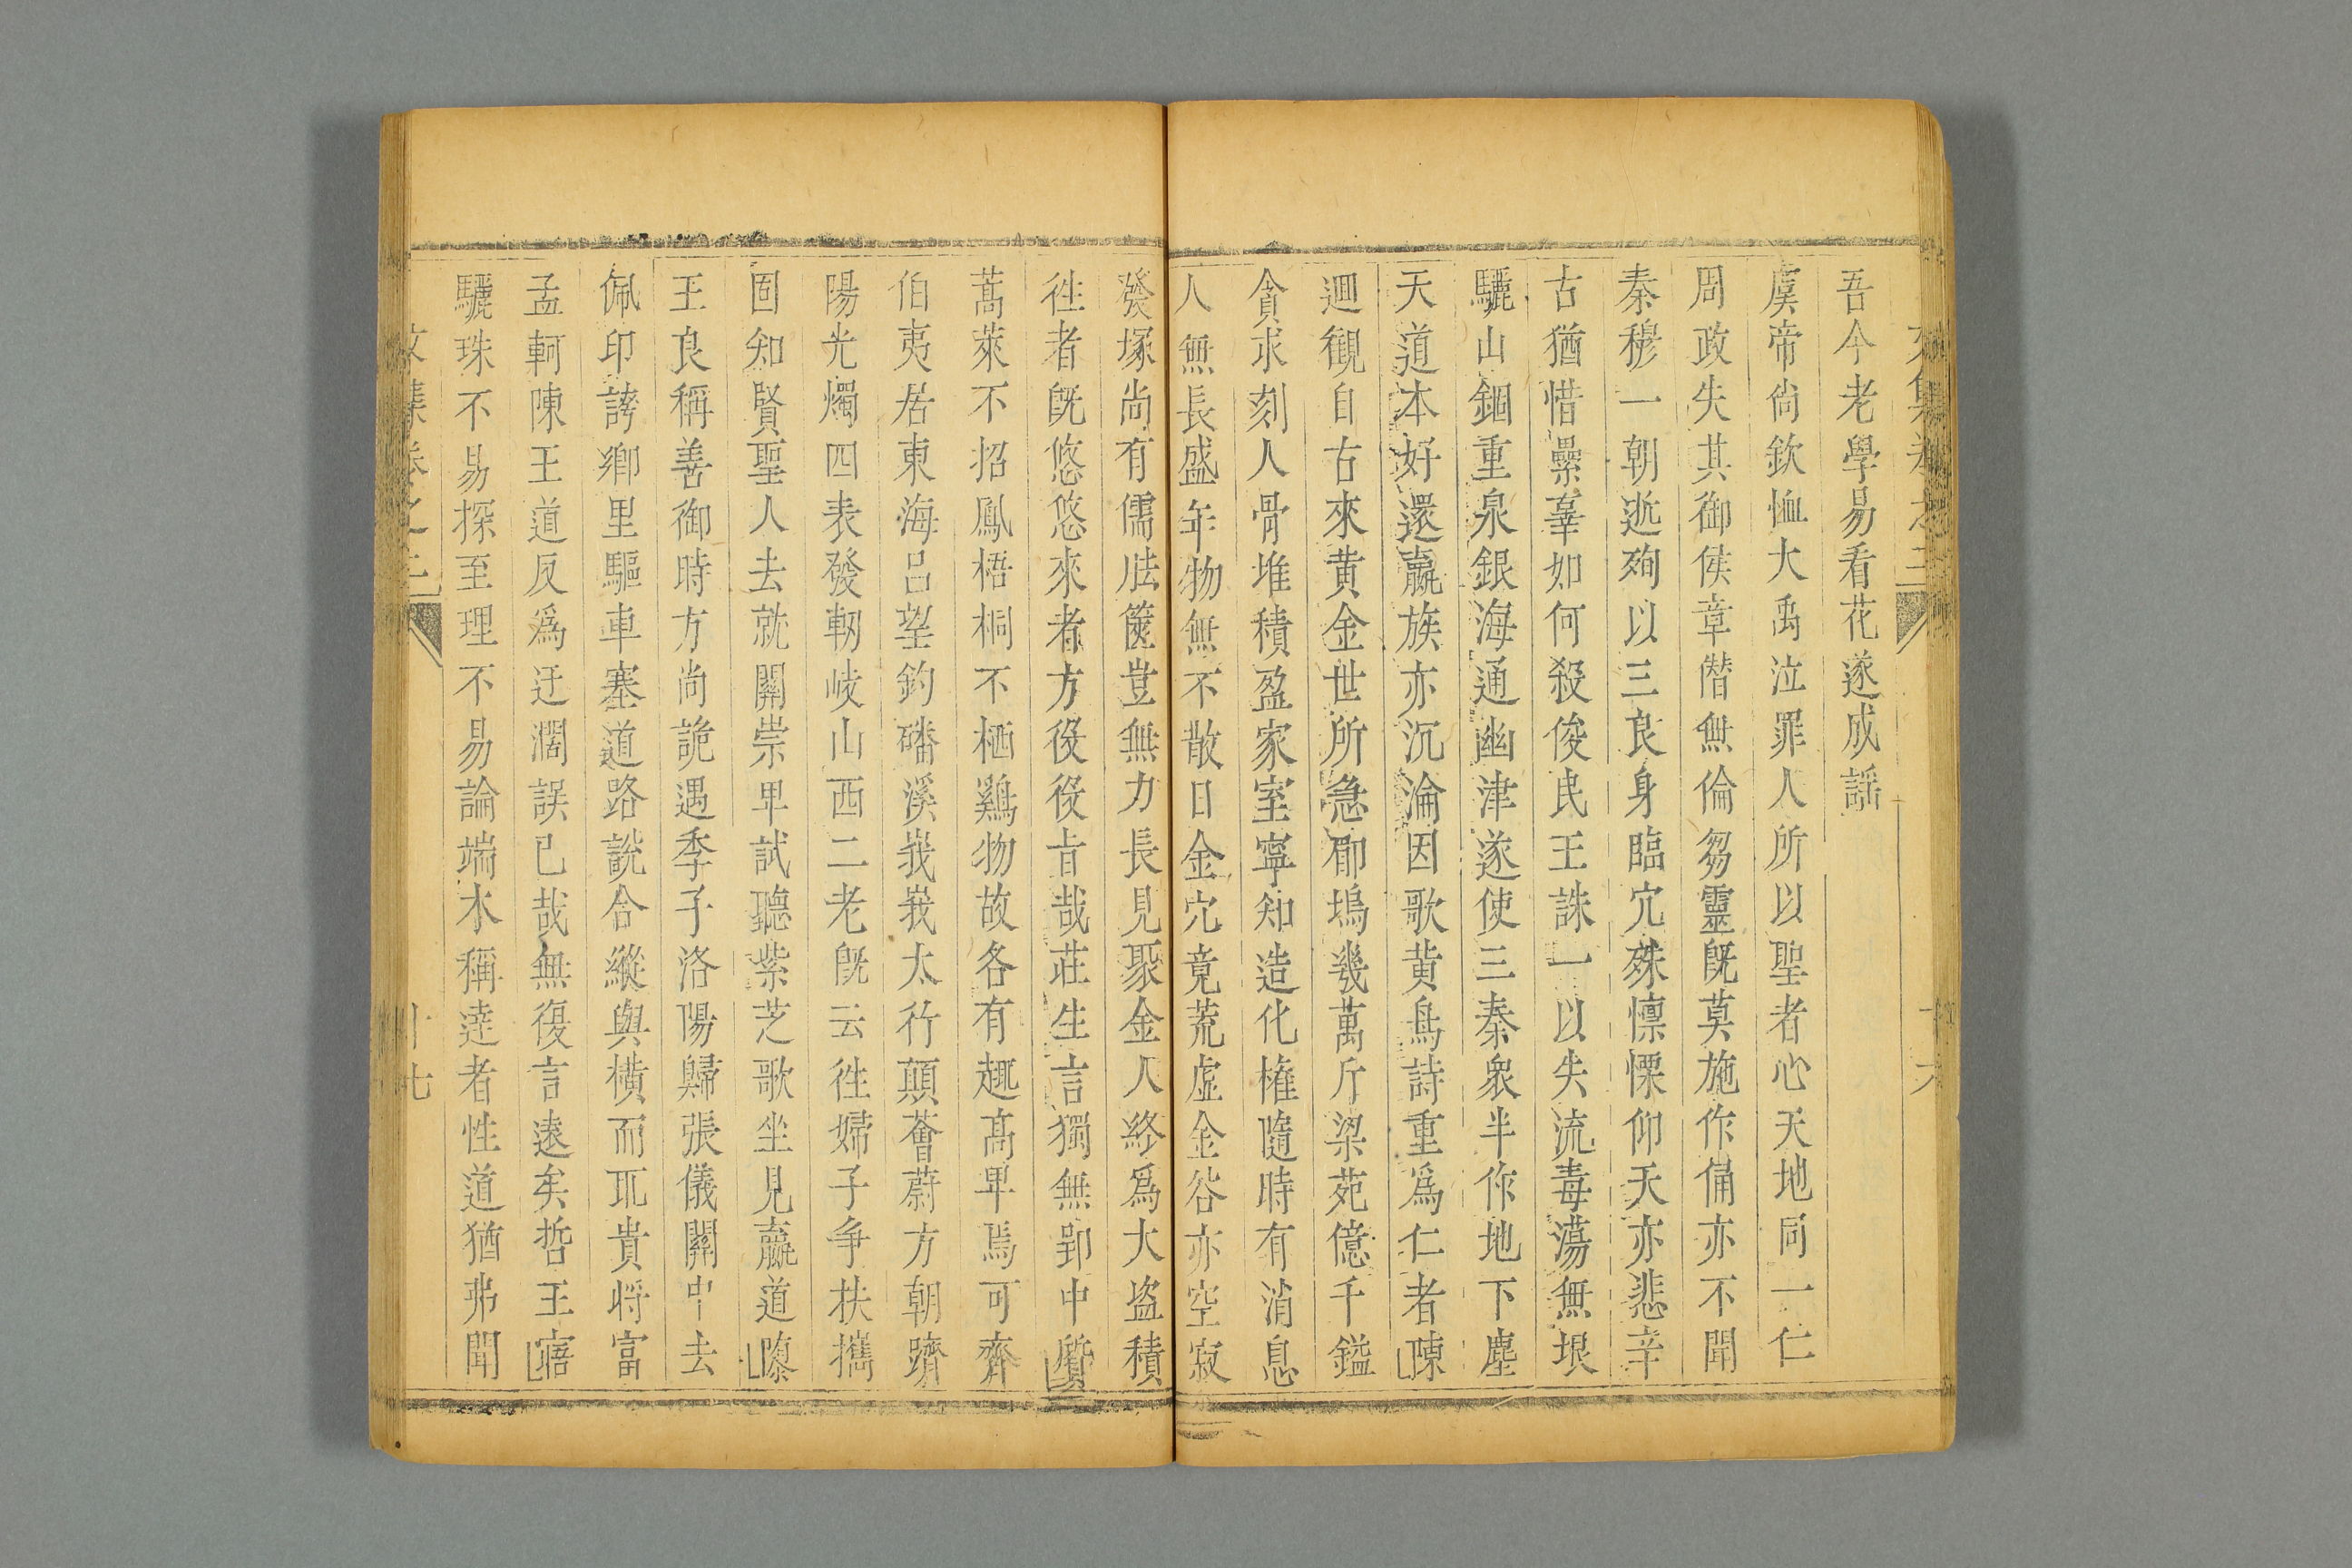 文集卷之三
十六
吾今老學易看花遂成謡
虞帝尚欽恤大禹泣罪人所以聖者心天地同一仁
周政失其御侯章僣無倫芻靈既莫施作俑亦不聞
秦穆一朝逝殉以三良身臨穴殊懍慄仰天亦悲辛
古猶惜纍辜如何殺俊民王誅一以失流毒蕩無垠
驪山錮重泉銀海通幽津遂使三秦衆半作地下塵
天道本好還嬴族亦沉淪因歌黄鳥詩重爲仁者陳
迴觀自古來黄金世所急郿塢幾萬斤梁苑億千鎰
貪求刻人骨堆積盈家室寧知造化權隨時有消息
人無長盛年物無不散日金穴竟荒虚金谷亦空寂
發塚尚有儒胠篋豈無力長見聚金人終爲大盜積
徃者既悠悠來者方役役旨哉莊生言獨無郢中質
蒿萊不招鳳梧桐不栖鷄物故各有趣高卑焉可齊
伯夷居東海吕望釣磻溪峩峩太行顛薈蔚方朝隮
陽光燭四表發軔岐山西二老既云徃婦子争扶攜
固知賢聖人去就關崇卑試聽紫芝歌坐見嬴道隳
王良稱善御時方尚詭遇季子洛陽歸張儀關中去
佩印誇鄉里驅車塞道路說合縱與横而取貴將富
孟軻陳王道反爲迂濶誤已哉無復言遠矣哲王寤
驪珠不易探至理不易論端木稱達者性道猶弗聞
文集卷之三
十七